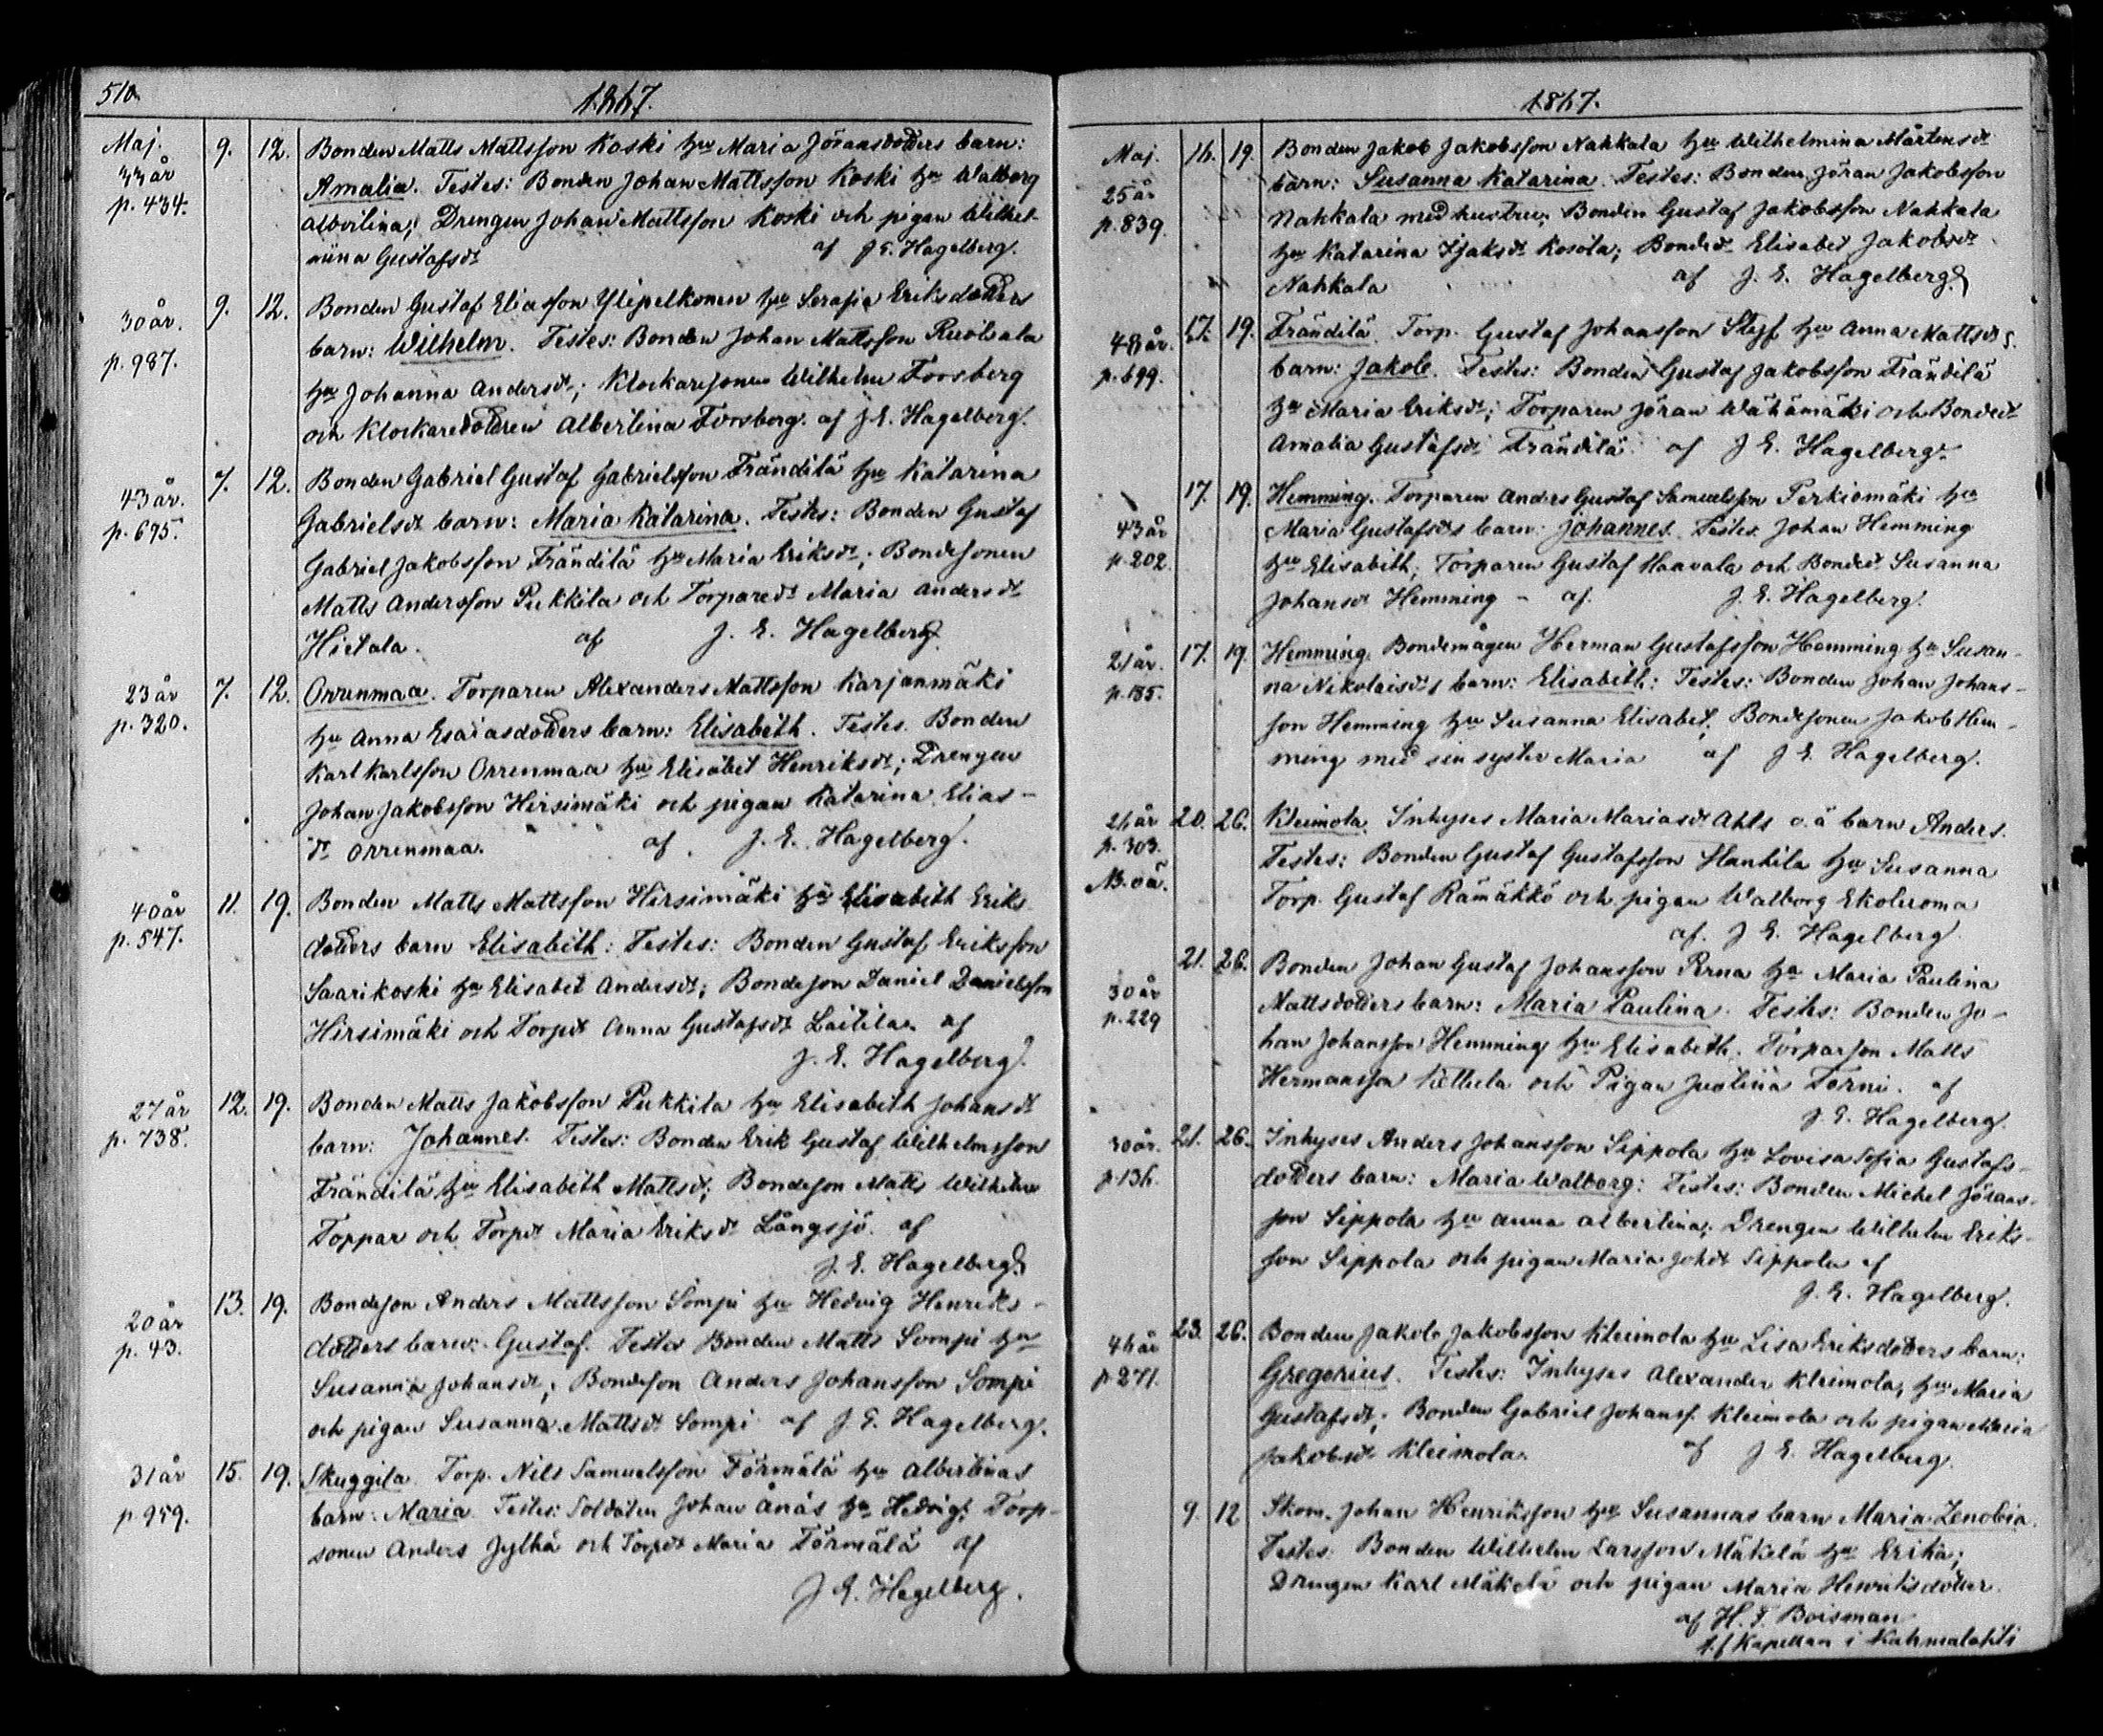 510.
1867.
Maj. 9. 12. Bonden Matts Mattsson Koski hu Maria Jöransdotters barn:
33 år Amalia. Testes: Bonden Johan Mattsson Koski hu Walborg
p. 434. Albertina; Drengen Johan Mattsson Koski och pigan Wilhel-
mina Gustafsdt af J. E. Hagelberg.
30 år. 9. 12. Bonden Gustaf Eliasson Ylipelkonen hu Serafia Eriksdotters
p. 987. barn: Wilhelm. Testes: Bonden Johan Mattsson Ruotsala
hu Johanna Andersdt; Klockaresonen Wilhelm Forsberg
och Klockaredottren Albertina Forsberg. af J. E. Hagelberg.
43 år. 7. 12. Bonden Gabriel Gustaf Gabrielsson Frändilä hu Katarina
p. 695. Gabrielsdt barn: Maria Katarina. Testes: Bonden Gustaf
Gabriel Jakobsson Frändilä hu Maria Eriksdt; Bondesonen
Matts Andersson Pukkila och Torparedt Maria Andersdt
Hietala. af J. E. Hagelberg.
23 år 7. 12. Orrenmaa. Torparen Alexanders Mattsson Karjanmäki
p. 320. hu Anna Esaiasdotters barn: Elisabeth. Testes. Bonden
Karl Karlsson Orrenmaa hu Elisabet Henriksdt; Drengen
Johan Jakobsson Hirsimäki och pigan Katarina Elias-
dt Orrenmaa. af J. E. Hagelberg.
40 år 11. 19. Bonden Matts Mattsson Hirsimäki hu Elisabeth Eriks
p. 547. dotters barn Elisabeth: Testes: Bonden Gustaf Eriksson
Saarikoski hu Elisabet Andersdt; Bondeson Daniel Danielsson
Hirsimäki och Torpdt Anna Gustafsdt Laitila. af
J. E. Hagelberg.
27 år 12. 19. Bonden Matts Jakobsson Pukkila hu Elisabeth Johansdt
p. 738. barn: Johannes. Testes: Bonden Erik Gustaf Wilhelmsson
Frändilä hu Elisabeth Mattsdt; Bondeson Matts Wilhelm
Toppar och Torpdt Maria Eriksdt Långsjö. af
J. E. Hagelberg
20 år 13. 19. Bondeson Anders Mattsson Sompi hu Hedvig Henriks-
p. 43. dotters barn: Gustaf. Testes Bonden Matts Sompi hu
Susanna Johansdt; Bondeson Anders Johansson Sompi
och pigan Susanna Mattsdt Sompi af J. E. Hagelberg.
31 år 15. 19. Skuggila. Torp. Nils Samuelsson Törmälä hu Albertinas
p. 959. barn: Maria. Testes: Soldaten Johan Ånäs hu Hedvig; Torp-
sonen Anders Jylhä och Torpdt Maria Törmälä af
J. E. Hagelberg.
1867.
Maj. 16. 19. Bonden Jakob Jakobsson Nahkala hu Wilhelmina Mårtensdt
25 år barn: Susanna Katarina. Testes: Bonden Jöran Jakobsson
p. 839. Nahkala med hustru; Bonden Gustaf Jakobsson Nahkala
hu Katarina Isaksdt Kosola; Bondedt Elisabet Jakobsdt
Nahkala af J. E. Hagelberg
48 år. 17. 19. Frändilä. Torp. Gustaf Johansson Styf hu Anna Mattsdts
p. 699. barn: Jakob. Testes: Bonden Gustaf Jakobsson Frändilä
hu Maria Eriksdt; Torparen Jöran Wähämäki och Bondedt
Amalia Gustafsdt Frändilä. af J. E. Hagelberg.
17. 19. Hemming. Torparen Anders Gustaf Samuelsson Perkiomäki hu
43 år Maria Gustafsdts barn: Johannes. Testes. Johan Hemming
p. 202. hu Elisabeth; Torparen Gustaf Haavala och Bondedt Susanna
Johansdt Hemming - af. J. E. Hagelberg.
21 år. 17. 19. Hemming. Bondemågen Herman Gustafsson Hemming hu Susan-
p. 185. na Nikolaisdts barn: Elisabeth: Testes: Bonden Johan Johans-
son Hemming hu Susanna Elisabet; Bondesonen Jakob Hem-
ming med sin syster Maria af J. E. Hagelberg.
26 år 20. 26. Kleimola. Inhyses Maria Mariasdt Ahls o.ä barn Anders.
p. 303. Testes: Bonden Gustaf Gustafsson Hanhila hu Susanna
N.B. oä. Torp. Gustaf Rämäkkö och pigan Walborg Ekoluoma
af. J. E. Hagelberg
21. 26. Bonden Johan Gustaf Johansson Perna hu Maria Paulina
30 år Mattsdotters barn: Maria Paulina. Testes: Bonden Jo-
p. 229 han Johansson Hemming hu Elisabeth; Torparson Matts
Hermansson Kettula och Pigan Justina Torni. af
J. E. Hagelberg.
30 år. 21. 26. Inhyses Anders Johansson Sippola hu Lovisa Sofia Gustafs-
p. 136. dotters barn: Maria Walborg: Testes: Bonden Michel Jörans-
son Sippola hu Anna Albertina; Drengen Wilhelm Eriks-
son Sippola och pigan Maria Johdt Sippola af
J. E. Hagelberg.
46 år 23. 26. Bonden Jakob Jakobsson Kleimola hu Lisa Eriksdotters barn:
p. 271. Gregorius. Testes: Inhyses Alexander Kleimola, hu Maria
Gustafsdt; Bonden Gabriel Johanss. Kleimola och pigan Maria
Jakobsdt Kleimola. af J. E. Hagelberg.
9. 12 Skom. Johan Henriksson hu Susannas barn Maria Zenobia.
Testes: Bonden Wilhelm Larsson Mäkelä hu Erika;
Drengen Karl Mäkelä och pigan Maria Henriksdotter.
af H. F. Boisman
t.f Kapellan i Kahmalahti